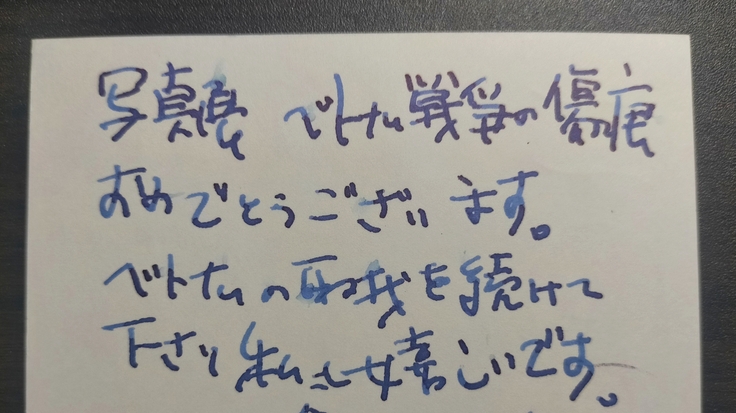 写真展 ベトナム戦争の傷痕
おめでとうございます。
ベトナムの取材を続けて
下さり私も嬉しいです。